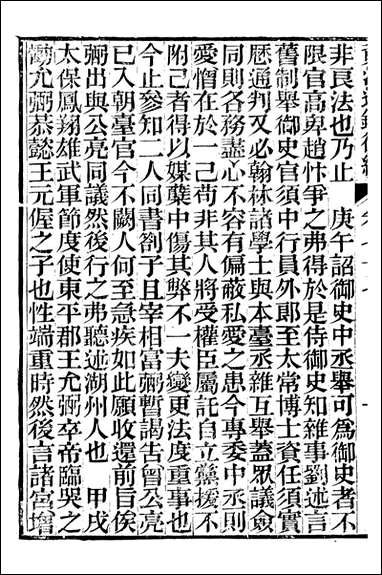 非良法也乃止　庚午詔御史中丞舉可為御史者不
限官高卑趙抃爭之弗得於是侍御史知雜事劉述言
舊制舉御史官須中行員外郎至太常博士資任須實
歷通判又必翰林諸學士與本臺丞雜互舉蓋眾議僉
同則各務盡心不容有偏蔽私愛之患今專委中丞則
愛憎在於一己苟非其人將受權臣屬託自立黨援不
附己者得以媒孽中傷其弊不一夫變更法度重事也
今止參知二人同書劄子且宰相富弼暫謁告曾公亮
已入朝臺官今不闕人何至急疾如此願收還前旨俟
弼出與公亮同議然後行之弗聽述湖州人也　甲戌
太保鳳翔雄武軍節度使東平郡王允弼卒帝臨哭之
慟允弼恭懿王元偓之子也性端重時然後言諸宮增